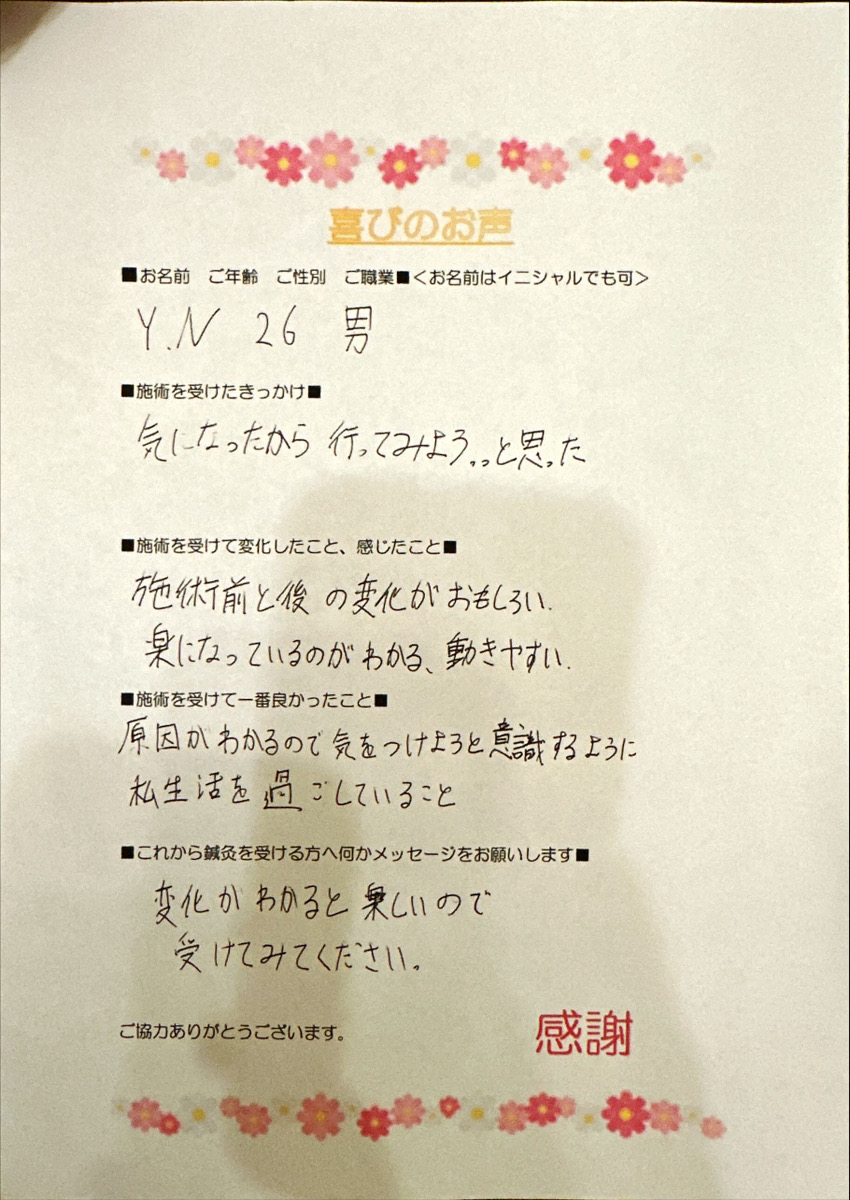 喜びのお声
■お名前　ご年齢　ご性別　ご職業■<お名前はイニシャルでも可>
Y.N 26 男
■施術を受けたきっかけ■
気になったから 行ってみよう..と思った
■施術を受けて変化したこと、感じたこと■
施術前と後の変化がおもしろい.
楽になっているのがわかる、動きやすい.
■施術を受けて一番良かったこと■
原因がわかるので気をつけようと意識するように
私生活を過ごしていること
■これから鍼灸を受ける方へ何かメッセージをお願いします■
変化がわかると楽しいので
受けてみてください。
ご協力ありがとうございます。
感謝